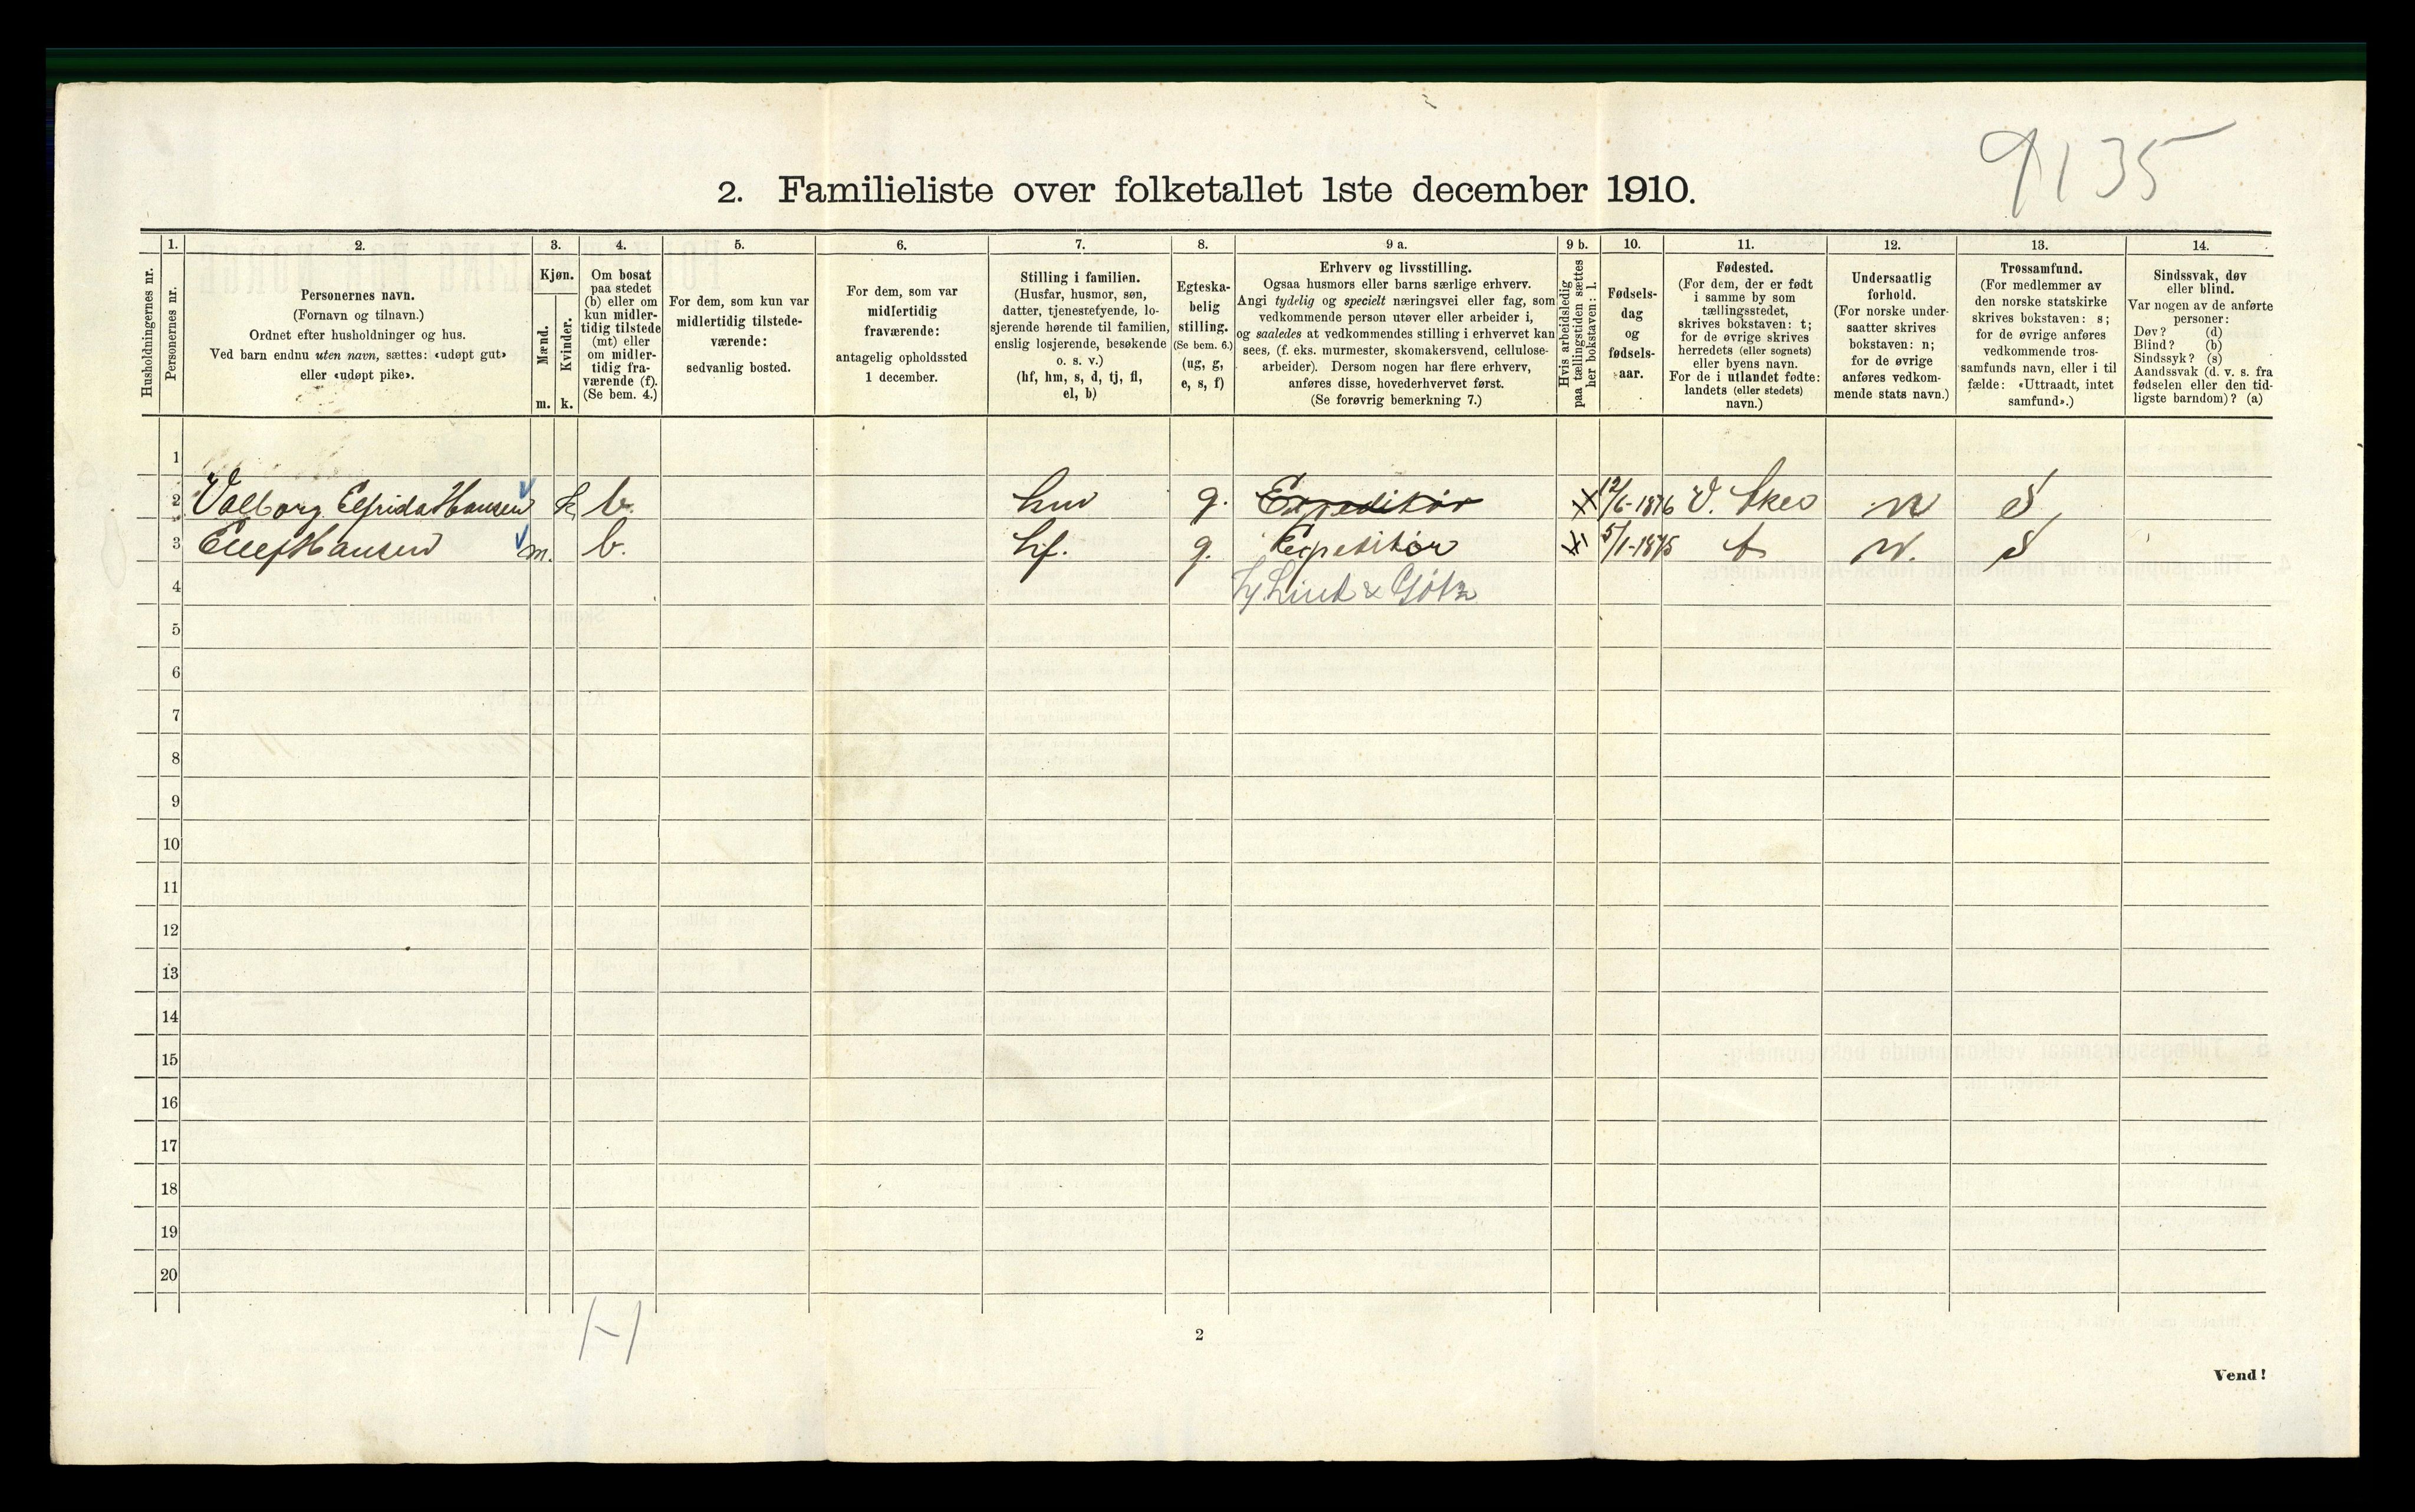 9135
2. Familieliste over folketallet 1ste december 1910.
Husholdningernes nr.
1.
Personernes nr.
2.
Personernes navn.
(Fornavn og tilnavn.)
Ordnet efter husholdninger og hus.
Ved barn endnu uten navn, sættes: «udøpt gut»
eller «udøpt pike».
3.
Kjøn.
Mænd.
Kvinder.
m.
k.
4.
Om bosat
paa stedet
(b) eller om
kun midler-
tidig tilstede
(mt) eller
om midler-
tidig fra-
værende (f).
(Se bem. 4.)
5.
For dem, som kun var
midlertidig tilstede-
værende:
sedvanlig bosted.
6.
For dem, som var
midlertidig
fraværende:
antagelig opholdssted
1 december.
7.
Stilling i familien.
(Husfar, husmor, søn,
datter, tjenestefyende, lo-
sjerende hørende til familien,
enslig losjerende, besøkende
o. s. v.)
(hf, hm, s, d, tj, fl,
el, b)
8.
Egteska-
belig
stilling.
(Se bem. 6.)
(ug, g,
e, s, f)
9 a.
Erhverv og livsstilling.
Ogsaa husmors eller barns særlige erhverv.
Angi tydelig og specielt næringsvei eller fag, som
vedkommende person utøver eller arbeider i,
og saaledes at vedkommendes stilling i erhvervet kan
sees, (f. eks. murmester, skomakersvend, cellulose-
arbeider). Dersom nogen har flere erhverv,
anføres disse, hovederhvervet først.
(Se forøvrig bemerkning 7.)
9 b.
Hvis arbeidsledig
paa tællingstiden sættes
her bokstaven: l.
10.
Fødsels-
dag
og
fødsels-
aar.
11.
Fødested.
(For dem, der er født
i samme by som
tællingsstedet,
skrives bokstaven: t;
for de øvrige skrives
herredets (eller sognets)
eller byens navn.
For de i utlandet fødte:
landets (eller stedets)
navn.)
12.
Undersaatlig
forhold.
(For norske under-
saatter skrives
bokstaven: n;
for de øvrige
anføres vedkom-
mende stats navn.)
13.
Trossamfund.
(For medlemmer av
den norske statskirke
skrives bokstaven: s;
for de øvrige anføres
vedkommende tros-
samfunds navn, eller i til
fælde: «Uttraadt, intet
samfund».)
14.
Sindssvak, døv
eller blind.
Var nogen av de anførte
personer:
Døv? (d)
Blind? (b)
Sindssyk? (s)
Aandssvak (d. v. s. fra
fødselen eller den tid-
ligste barndom)? (a)
1
2 Valborg Elfrida Hansen k b. hm g. Expeditør 12/6-1876 V. Aker n S
3 Ellef Hansen m. b. hf. g. Expeditør 5/1-1875 t n. S
4
5
6
7
8
9
10
11
12
13
14
15
16
17
18
19
20
2
Vend!